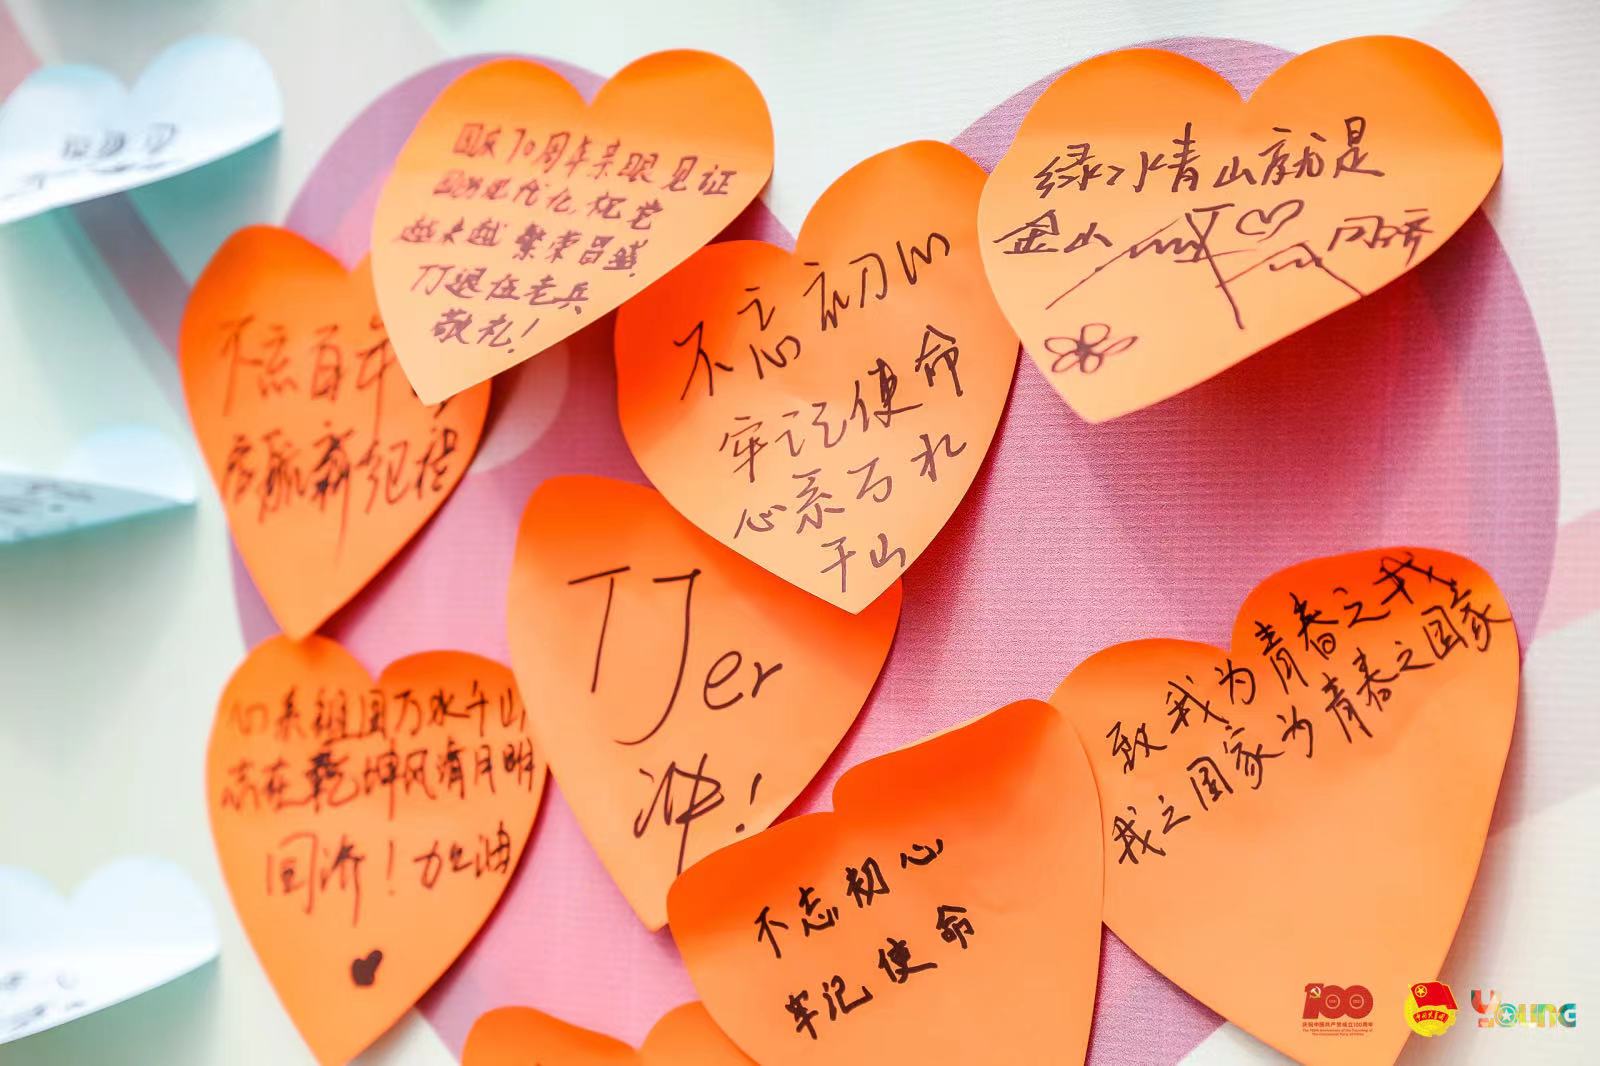 国庆70周年亲眼见证
国防现代化
越来越繁荣昌盛
TJ退伍老兵
敬礼!
绿水青山就是
金山
同济
不忘初心
牢记使命
心系万水
千山
不忘百年
启航新纪程
TJer
冲!
心系祖国万水千山
志在乾坤风清月明
同济!加油
致我为青春之我
我之国家为青春之国家
不忘初心
牢记使命
100
庆祝中国共产党成立100周年
中国共青团
YOUNG